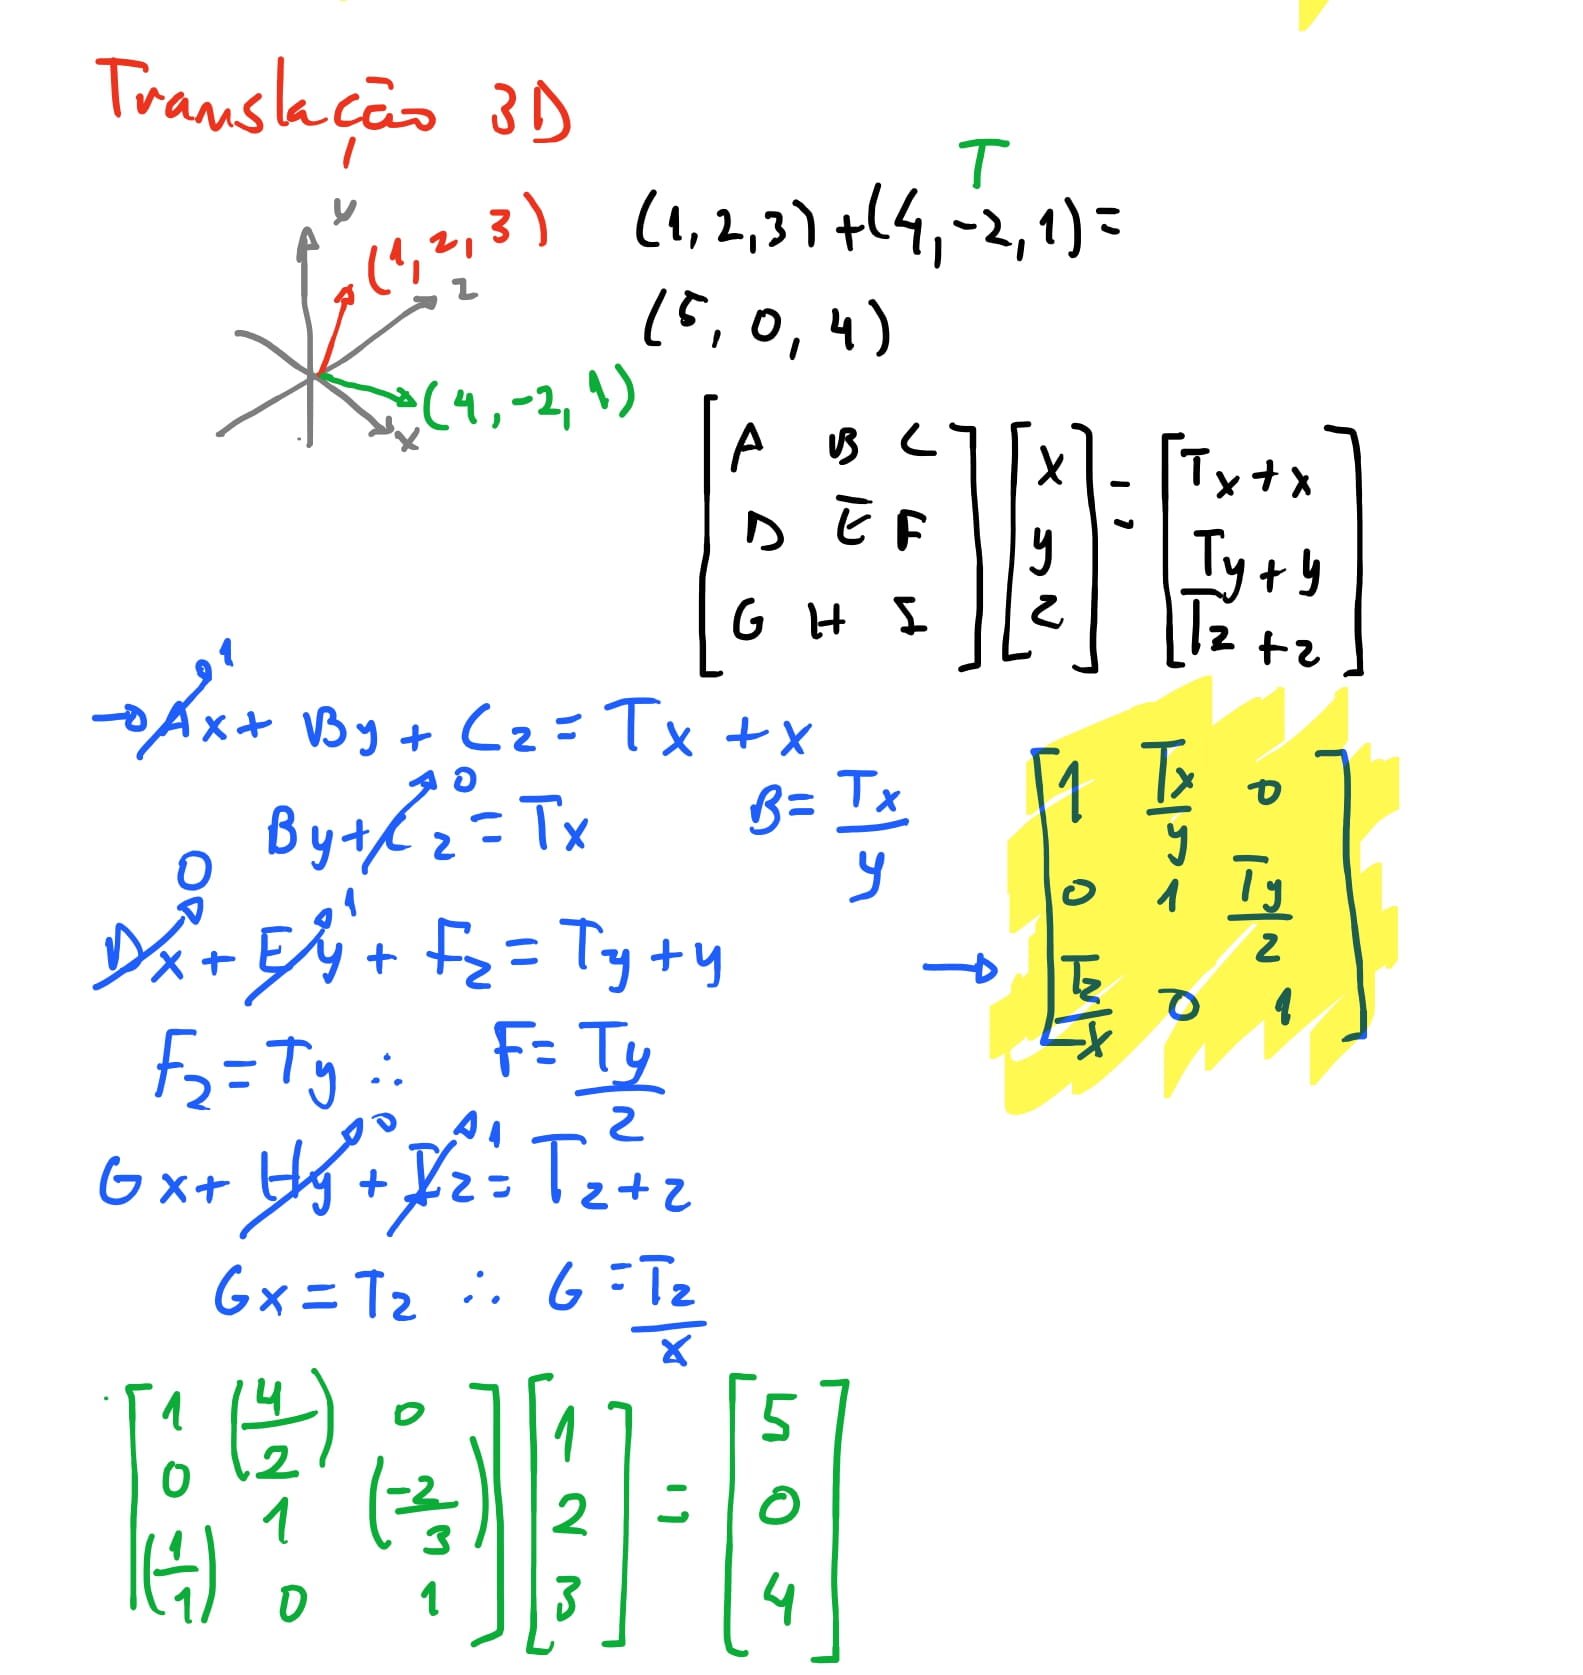 Translação 3D
T
y
(1, 2, 3)
z
(4, -2, 1)
x
(1, 2, 3) + (4, -2, 1) =
(5, 0, 4)
[A B C] [x] = [Tx + x]
[D E F] [y] [Ty + y]
[G H I] [z] [Tz + z]
→ Ax + By + Cz = Tx + x
1
By + Cz = Tx
0
B = Tx/y
Dx + Ey + Fz = Ty + y
0 1
Fz = Ty ∴ F = Ty/z
Gx + Hy + Iz = Tz + z
0 1
Gx = Tz ∴ G = Tz/x
→ [1 Tx/y 0]
[0 1 Ty/z]
[Tz/x 0 1]
[1 (4/2) 0] [1] = [5]
[0 1 (-2/3)] [2] [0]
[(1/1) 0 1] [3] [4]